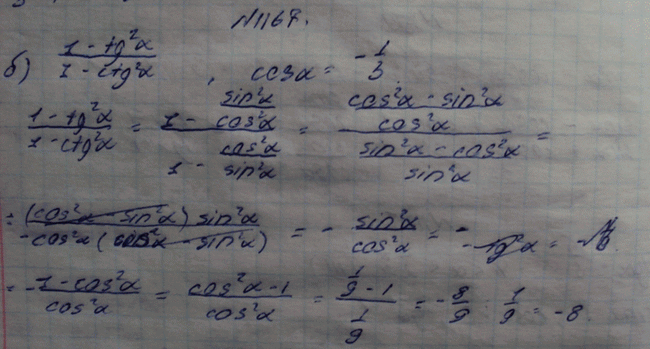 N1167.
б) (1 - tg²α)/(1 - ctg²α) , cosα = -1/3
(1 - tg²α)/(1 - ctg²α) = (1 - sin²α/cos²α)/(1 - cos²α/sin²α) = ((cos²α - sin²α)/cos²α)/((sin²α - cos²α)/sin²α) =
= ((cos²α - sin²α) sin²α)/(-cos²α (cos²α - sin²α)) = - sin²α/cos²α = - tg²α =
= -(1 - cos²α)/cos²α = (cos²α - 1)/cos²α = (1/9 - 1)/(1/9) = -8/9 : 1/9 = -8